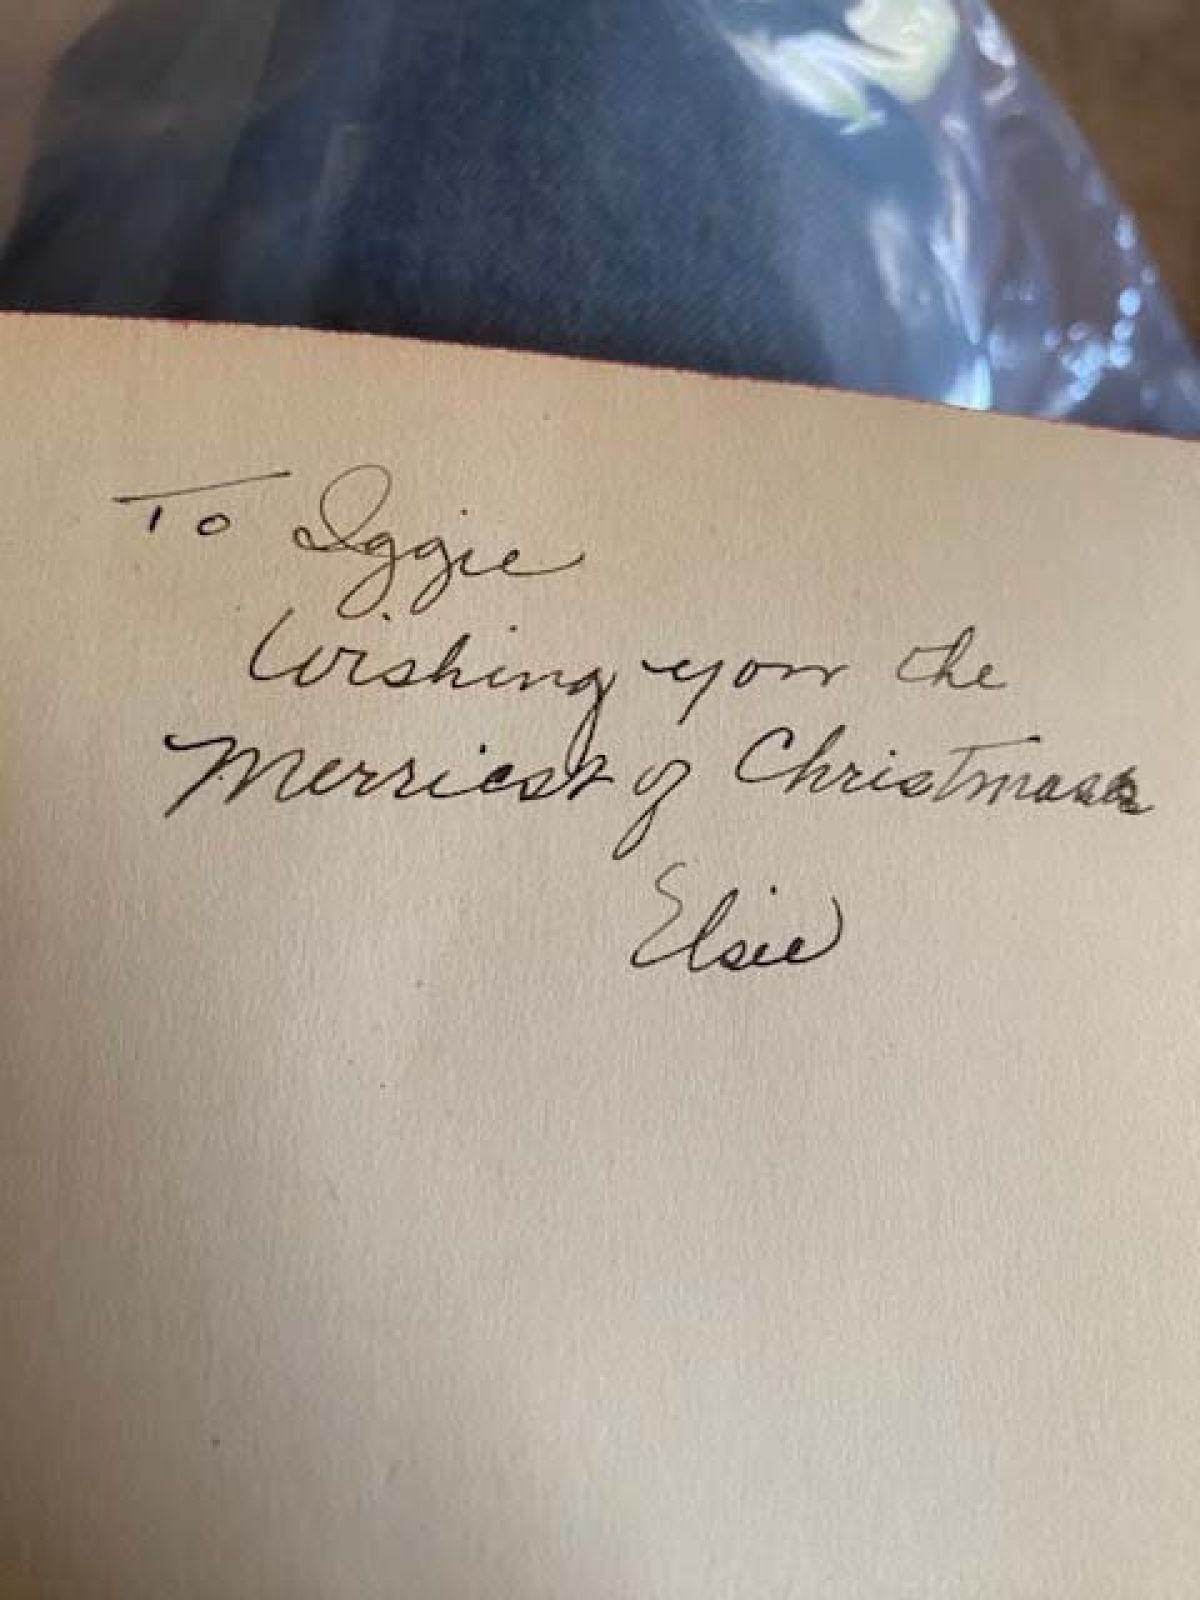 To Iggie
Wishing you the
Merriest of Christmases
Elsie